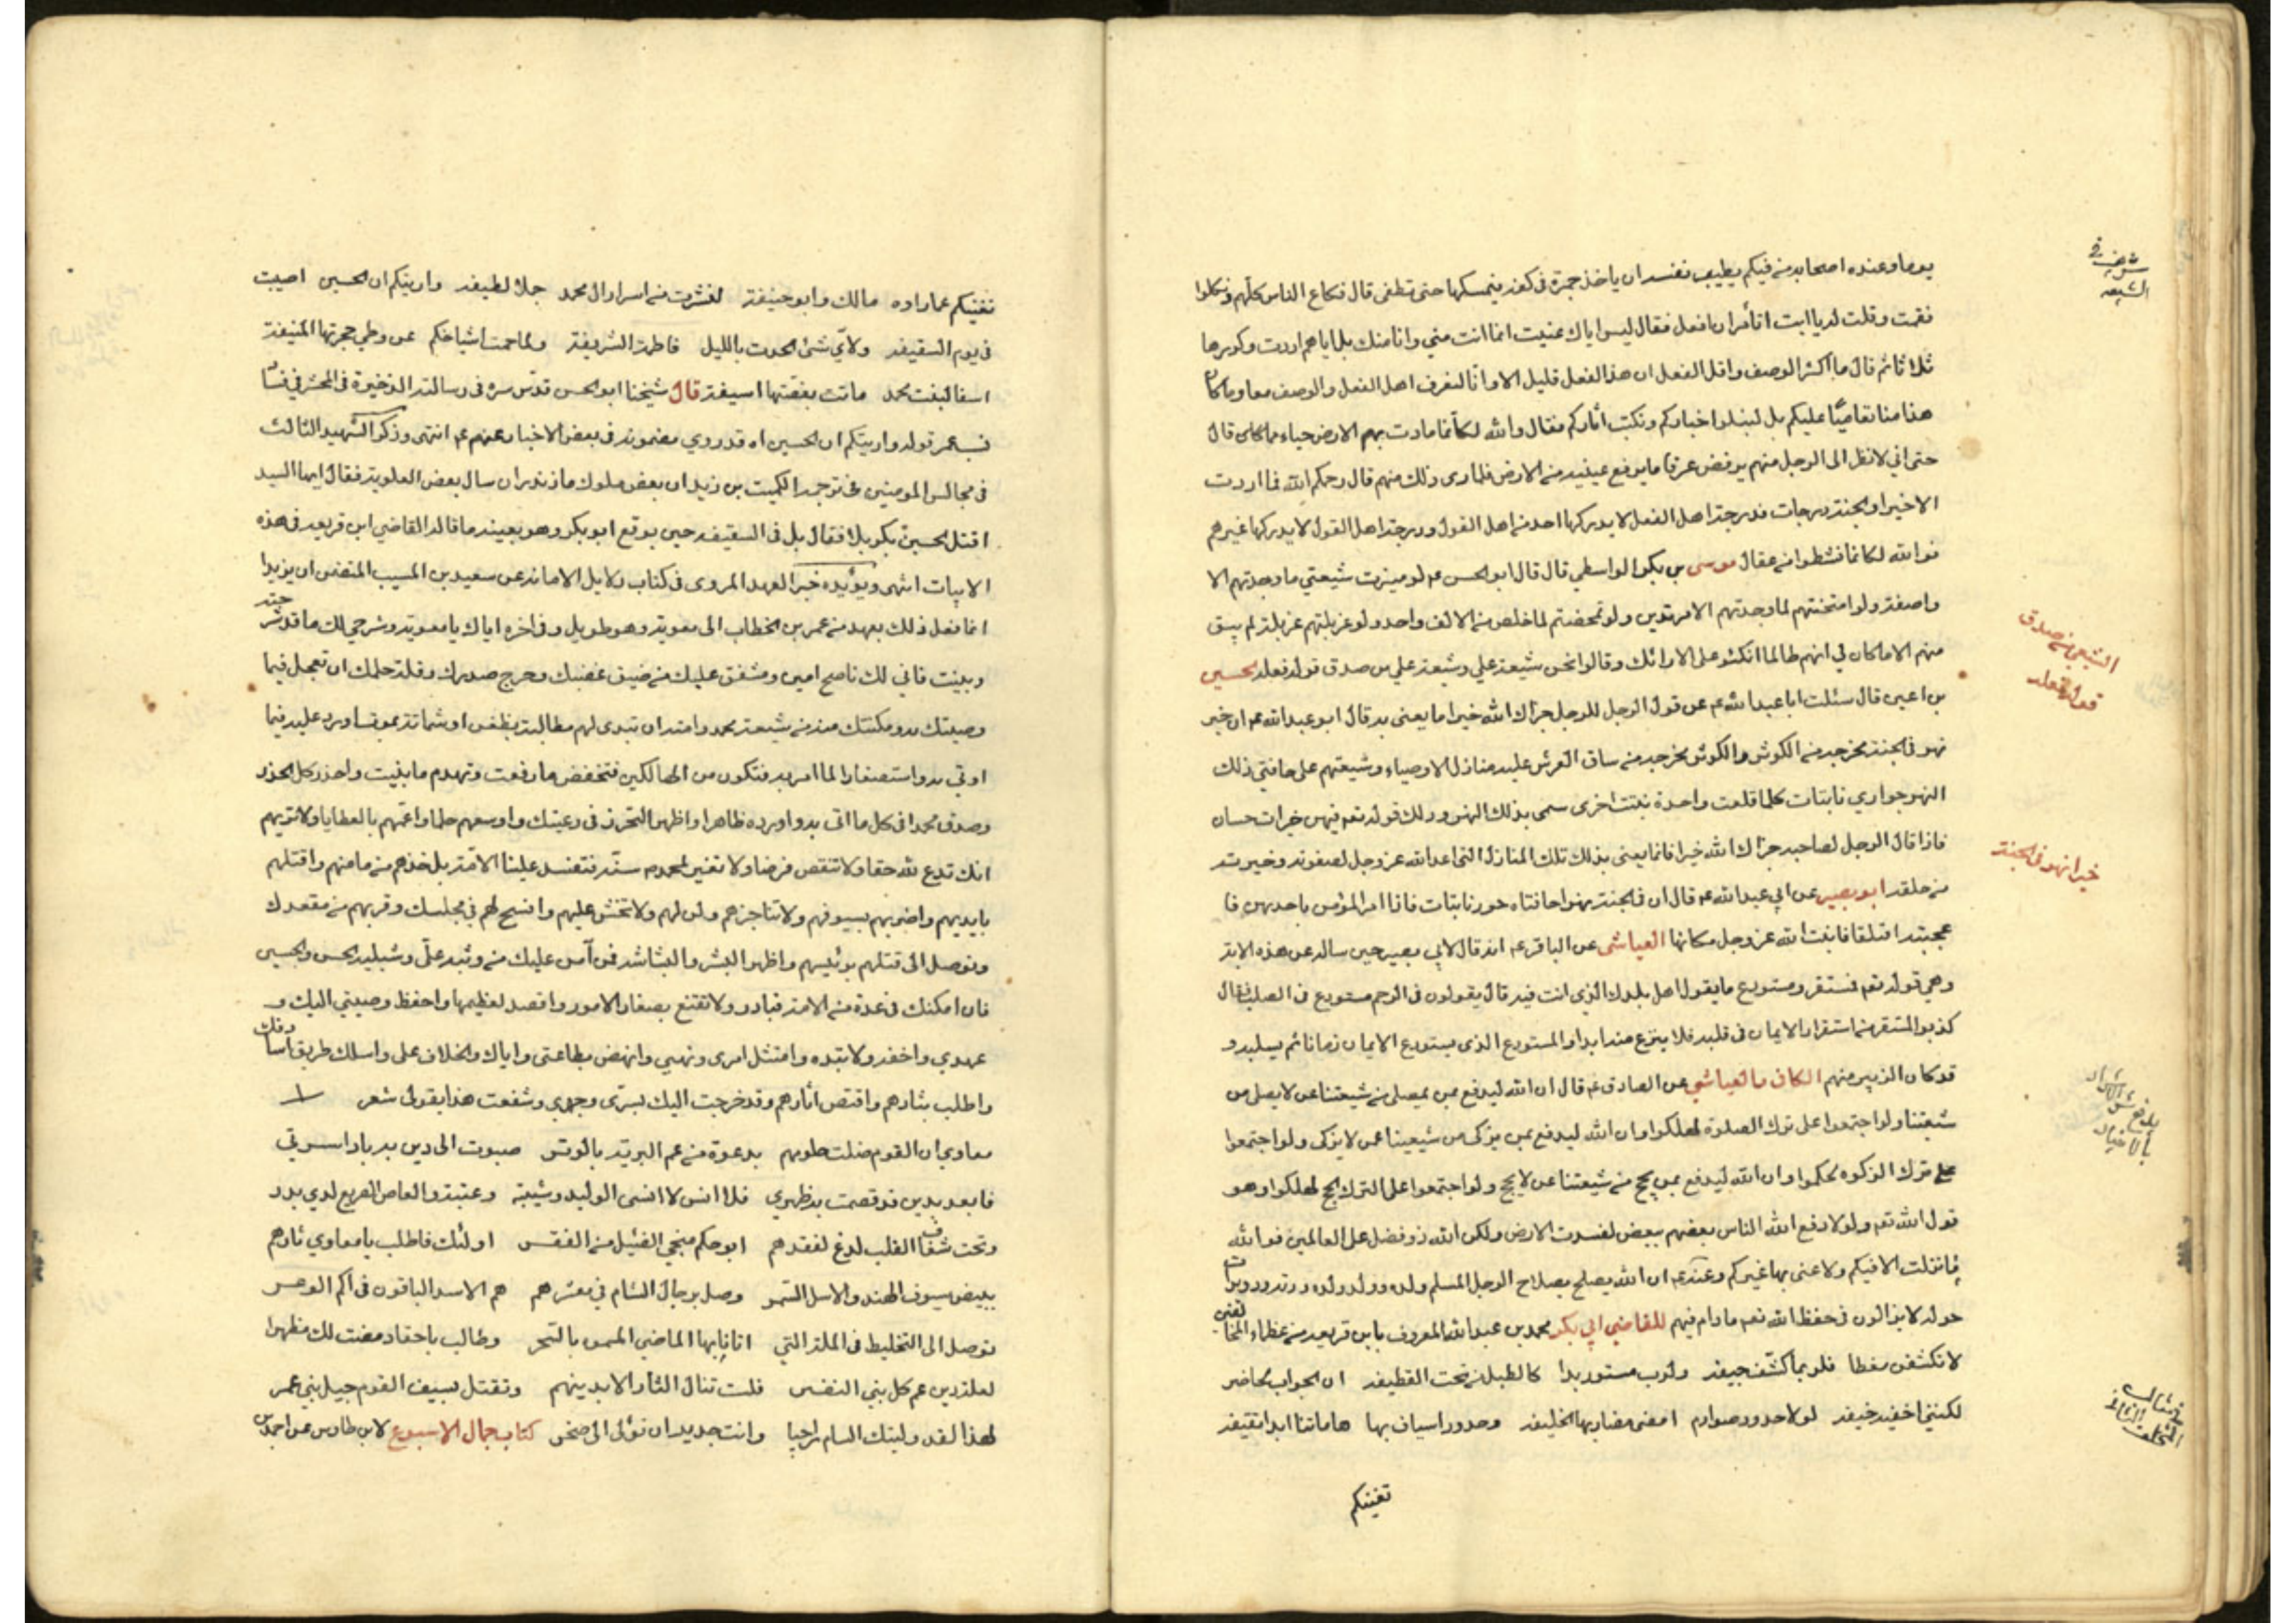 يوما وعنده اصحابه من فيكم يطيب نفسه ان ياخذ جمرة في كفه فيمسكها حتى تطفى قال فكاع الناس كلهم ونكلوا
فقمت وقلت له يا ابت اتأمر ان افعل فقال ليس اياك عنيت انما انت مني وانا منك بل اياهم اردت وكررها
ثلاثا ثم قال ما اكثر الوصف واقل الفعل ان هذا الفعل قليل الا وانا لنعرف اهل الفعل والوصف معا وما كان
هذا منا تعاميا عليكم بل لنبلوا اخباركم ونكتب اثاركم فقال والله لكأنما مادت بهم الارض حياء مما قال
حتى اني لانظر الى الرجل منهم يرفض عرقا ما يرفع عينيه من الارض فلما رى ذلك منهم قال رحمكم الله فما اردت
الا خيرا والجنة درجات فدرجة اهل الفعل لا يدركها احد من اهل القول ودرجة اهل القول لا يدركها غيرهم
فوالله لكانما نشطوا من عقال موسى بن بكر الواسطي قال قال ابو الحسن ع لو ميزت شيعتي ما وجدتهم الا
واصفة ولو امتحنتهم لما وجدتهم الا مرتدين ولو تمحصتهم لما خلص من الالف واحد ولو غربلتهم غربلة لم يبق
منهم الا ما كان لي انهم طالما اتكئوا على الارائك وقالوا نحن شيعة علي وشيعة علي من صدق قوله فعله الحسين
بن اعين قال سئلت ابا عبد الله ع عن قول الرجل للرجل جزاك الله خيرا ما يعنى به قال ابو عبد الله ع ان خير
نهر في الجنة مخرجه من الكوثر والكوثر مخرجه من ساق العرش عليه منازل الاوصياء وشيعتهم على حافتي ذلك
النهر جواري نابتات كلما قلعت واحدة نبتت اخرى سمي بذلك النهر وذلك قوله تعم فيهن خيرات حسان
فاذا قال الرجل لصاحبه جزاك الله خيرا فانما يعني بذلك تلك المنازل التي اعد الله عز وجل لصفوته وخيرته
من خلقه ابو بصير عن ابي عبد الله ع قال ان في الجنة نهرا حافتاه حور نابتات فاذا امر المؤمن باحديهن فا
عجبته اقتلعها فانبت الله عز وجل مكانها العياشي عن الباقر ع انه قال لابي بصير حين ساله عن هذه الاية
وهي قوله تعم فمستقر ومستودع ما يقول اهل بلدك الذي انت فيه قال يقولون في الرحم مستودع في الصلب فقال
كذبوا المستقر من استقر الايمان في قلبه فلا ينزع منه ابدا والمستودع الذي يستودع الايمان زمانا ثم يسلبه و
قد كان الزبير منهم الكافي والعياشي عن الصادق ع قال ان الله ليدفع بمن يصلي من شيعتنا عن لا يصلي من
شيعتنا ولو اجتمعوا على ترك الصلوة لهلكوا وان الله ليدفع بمن يزكى من شيعتنا عمن لا يزكى ولو اجتمعوا
على ترك الزكوة لهلكوا وان الله ليدفع بمن يحج من شيعتنا عن لا يحج ولو اجتمعوا على الترك الحج لهلكوا وهو
قول الله تعم ولولا دفع الله الناس بعضهم ببعض لفسدت الارض ولكن الله ذو فضل على العالمين فوالله
ما نزلت الا فيكم ولا عنى بها غيركم وعنه ع ان الله يصلح بصلاح الرجل المسلم ولده وولد ولده ودويرته ودويرات
حوله لا يزالون في حفظ الله تعم ما دام فيهم للقاضي ابي بكر محمد بن عبد الله المعروف بابن قريعة من عظماء المخالفين
لا تكشفن مغطا فلربما كشفت جيفة ولرب مستور بدا كالطبل من تحت القطيفة ان الجواب لحاضر
لكنني اخفيه خيفة لولا حدود صوارم امضى مضاربها الخليفة وحدود اسياف بها هاماتنا ابدا نقيفة
تغنيكم
شريف في الشيعة
الشيعي من صدق قوله فعله
خير انهر في الجنة
يدفع شر الاشرار بالاخيار
نغنيكم عما رواه مالك وابو حنيفة لنشرت من اسرار ال محمد جملا لطيفة واريتكم ان الحسين اصيب
في يوم السقيفة ولأي شئ الحدت بالليل فاطمة الشريفة ولما حمت اشياخكم عن وطي حجرتها المنيفة
اسفا لبنت محمد ماتت بغصتها اسيفة قال شيخنا ابو الحسن قدس سره في رسالته الذخيرة في المحشر في فساد
نسب عمر قوله واريتكم ان الحسين اه قد روي مضمونه في بعض الاخبار عنهم ع انتهى وذكر الشهيد الثالث
في مجالس المومنين في ترجمة الكميت بن زيد ان بعض ملوك مازندران سال بعض العلوية فقال ايها السيد
اقتل الحسين بكربلا فقال بل في السقيفة حين بويع ابو بكر وهو بعينه ما قاله القاضي ابن قريعة في هذه
الابيات انتهى ويؤيده خبر العهد المروى في كتاب دلايل الامامة عن سعيد بن المسيب المتضمن ان يزيدا
انما فعل ذلك بعهد من عمر بن الخطاب الى معوية وهو طويل وفي اخره اياك يا معوية وشرحي لك ما قد شرحته
وبينت فاني لك ناصح امين ومشفق عليك من ضيق عطنك وحرج صدرك وقلة حلمك ان تعجل فيما
وصيتك به ومكنتك منه من شيعة محمد وامته ان تبدى لهم مطالبة بطعن او شماتة بموت او رد عليه فيما
اوتي به واستصغارا لما امر به فتكون من الهالكين فتخفض ما رفعت وتهدم ما بنيت واحذر كل الحذر
وصدق محمدا في كل ما اتى به واورده ظاهرا واظهر التحرز في رعيتك واوسعهم حلما واعمهم بالعطايا ولا تريهم
انك تدع لله حقا ولا تنقص فرضا ولا تغير لمحمد سنة فتفسد علينا الامة بل خذهم من مامنهم واقتلهم
بايديهم واضربهم بسيوفهم ولا تناجزهم ولن لهم ولا تخش عليهم وافسح لهم في مجلسك وقربهم من مقعدك
وتوصل الى قتلهم برئيسهم واظهر البشر والبشاشة فمن آمن عليك منه ونبه علي وشبليه الحسن والحسين
فان امكنك في عدة من الامة فبادر ولا تقتنع بصغار الامور واقصد لعظيمها واحفظ وصيتي اليك و
عهدي واخفه ولا تبده وامتثل امرى ونهيي وانهض بطاعتى واياك والخلاف علي واسلك طريق اسلافك
واطلب بثارهم واقتص اثارهم وقد خرجت اليك بسرى وجهري وشفعت هذا بقولى شعر
معاوي ان القوم ضلت حلومهم بدعوة من عم البرية بالوتر صبوت الى دين به باد اسرتي
فابعد بدين قد قصمت به ظهري فلا انس لا انسى الوليد وشيبة وعتبة والعاص الصريع لدي بدر
وتحت شغاف القلب لدغ لفقدهم ابو حكم منجي الفئيل من الفقر اولئك فاطلب يا معاوي ثارهم
ببيض سيوف الهند والاسل السمر وصل برجال الشام في معشرهم هم الاسد الباقون في اكم الوعر
توصل الى التخليط في الملة التي اتانا بها الماضي المموه بالسحر وطالب باحقاد مضت لك مظهرا
لعلة دين عم كل بني النضر فلست تنال الثار الا بدينهم وتقتل بسيف القوم جيل بني عمر
لهذا لقد وليتك الشام راجيا وانت جدير ان تؤل الى صخر كتاب جمال الاسبوع لابن طاوس عن احمد بن